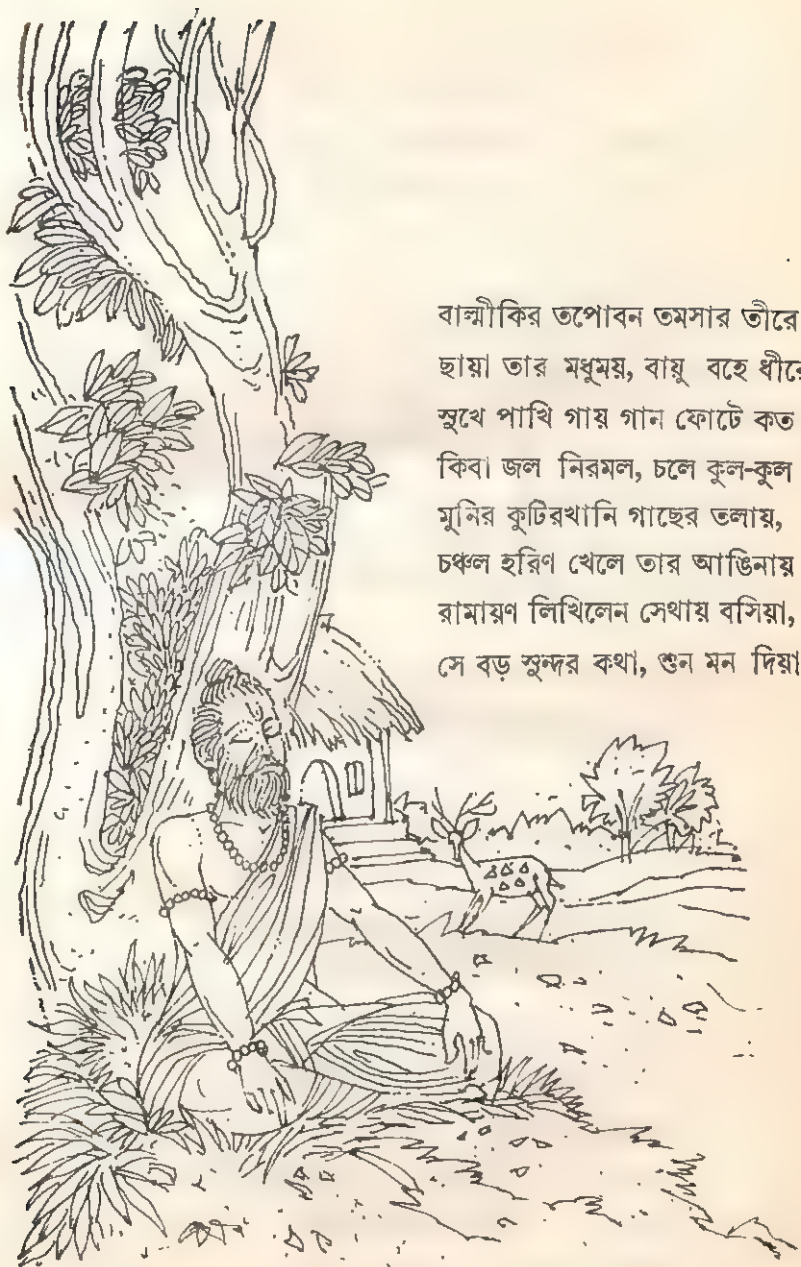 বাল্মীকির তপোবন তমসার তীরে
ছায়া তার মধুময়, বায়ু বহে ধীরে
সুখে পাখি গায় গান ফোটে কত
কিবা জল নিরমল, চলে কুল-কুল
মুনির কুটিরখানি গাছের তলায়,
চঞ্চল হরিণ খেলে তার আঙিনায়
রামায়ণ লিখিলেন সেথায় বসিয়া,
সে বড় সুন্দর কথা, শুন মন দিয়া